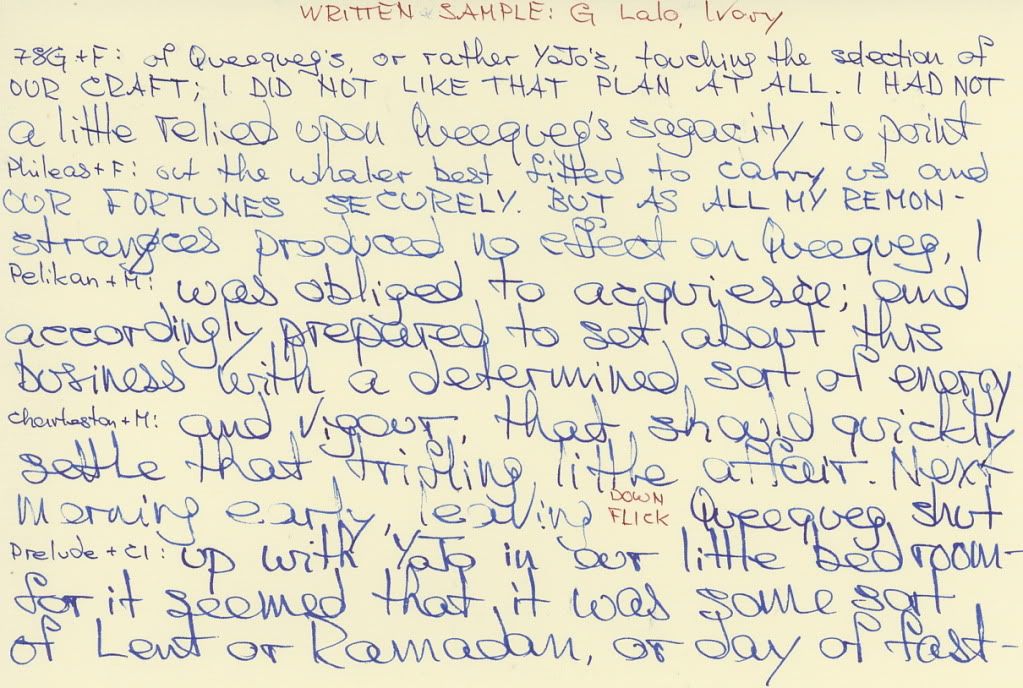 WRITTEN SAMPLE: G Lalo, Ivory
78G + F: of Queequeg's, or rather YoJo's, touching the selection of
OUR CRAFT; I DID NOT LIKE THAT PLAN AT ALL. I HAD NOT
a little relied upon Queequeg's sagacity to point
Phileas + F: out the whaler best fitted to carry us and
OUR FORTUNES SECURELY. BUT AS ALL MY REMON-
strances produced no effect on Queequeg, I
Pelikan + M: was obliged to acquiesce; and
accordingly prepared to set about this
business with a determined sort of energy
Charleston + M: and vigour, that should quickly
settle that trifling little affair. Next
morning early, leaving DOWN FLICK Queequeg shut
Prelude + CI: up with YoJo in our little bedroom-
for it seemed that it was some sort
of Lent or Ramadan, or day of fast-